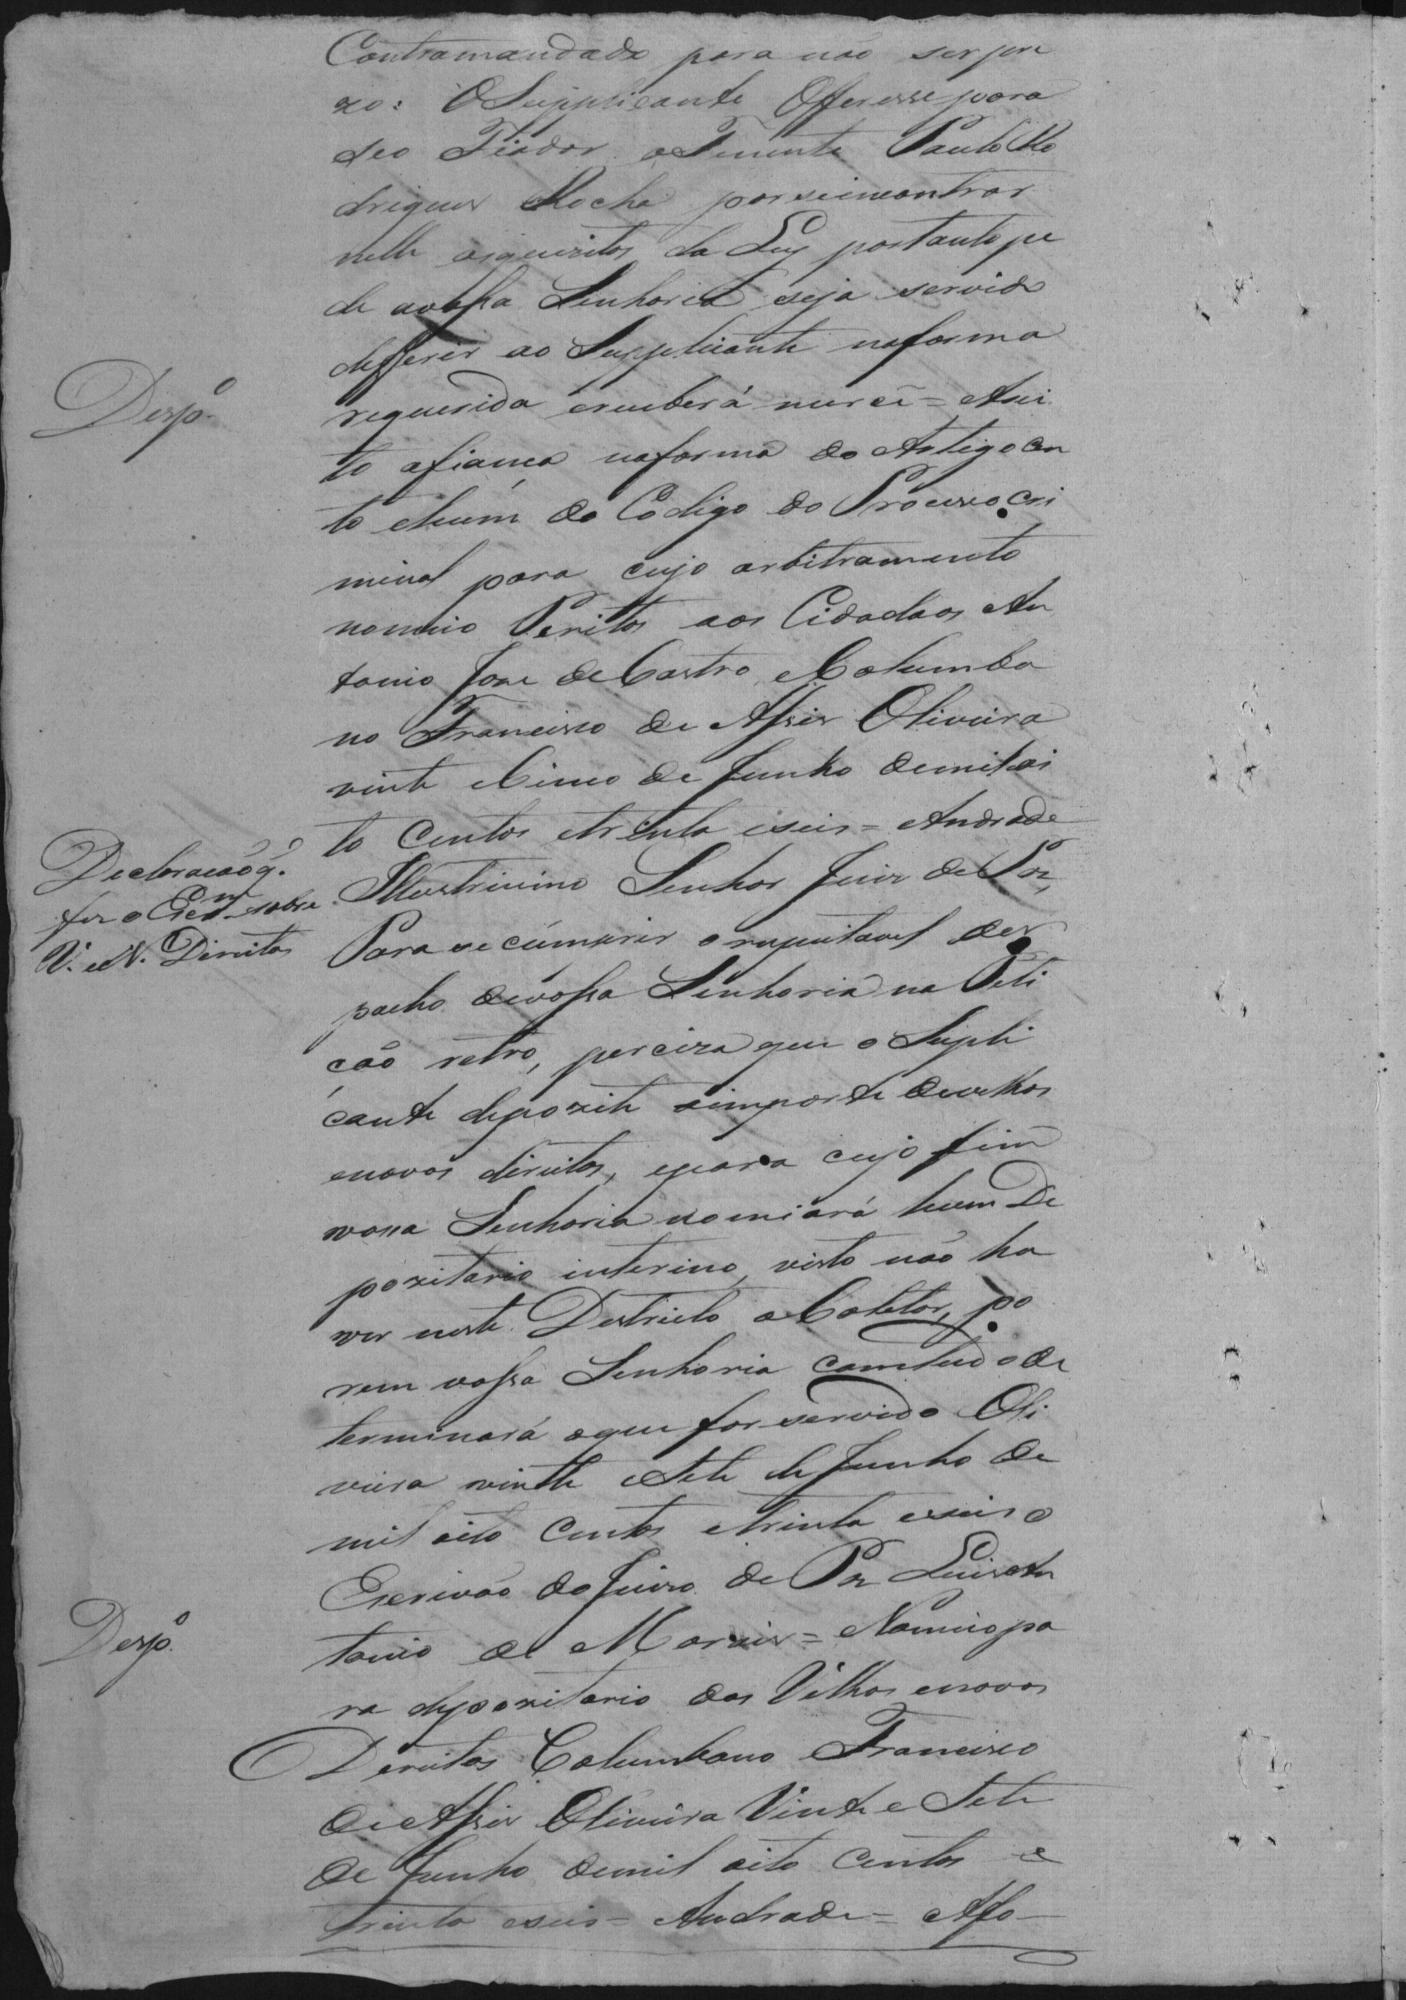 Contramandado para não ser pre
zo: O Supplicante Offeresse para
seo Fiador o Tenente Paulo Ro
drigues Rocha por se incontrar
nelle osquizitos da Ley portanto pe
de avossa Senhoria seja servido
defferir ao Supplicante naforma
requerida erceberá mercê = Asei
to afiança naforma do Artigo cen
to ehum do Codigo do Processo cri
minal para cujo arbitramento
nomeio Peritos aos Cidadaos An
tonio Jose de Castro, e Columba
no Francisco de Assis Oliveira
vinte e Cinco de Junho demil oi
to Centos etrinta eseis = Andrade
Despº
Illustrissimo Senhor Juiz de Paz,
Declaração q.
fez o Escrm sobre
V. e N. Direitos
Para se cúmprir o respeitavel des
pacho devossa Senhoria na Peti
ção retro, perciza que o Supli
cante depozite oimporte develhos
enovos direitos, epara cujo fim
vossa Senhoria nomiará hum De
pozitario interino, visto não ha
ver neste Destricto o Coletor, po
rem vossa Senhoria comtudo de
terminará oque for servido Oli
veira vinte eSete de Junho de
mil oito Centos etrinta eseis o
Escrivão do Juizo de Paz Luis An
tonio de Morais = Nomeio pa
Despº
ra depozitario dos Velhos enovos
Dereitos Columbano Francisco
de Assis Oliveira Vinte e Sete
de Junho demil oito Centos e
trinta eseis = Andrade = Afo